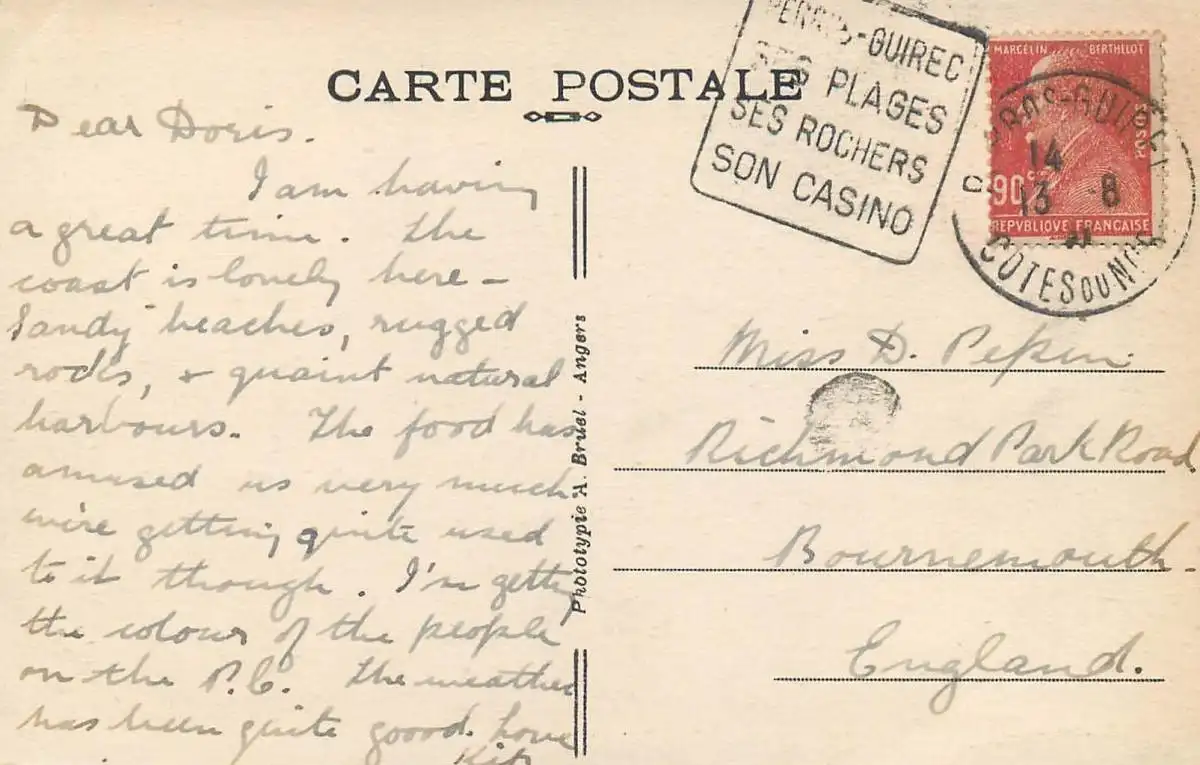 CARTE POSTALE
PERROS-GUIREC
SES PLAGES
SES ROCHERS
SON CASINO
MARCELIN BERTHELOT
POSTES
90c
REPVBLIQVE FRANÇAISE
PERROS-GUIREC
14
13 8
31
COTES DU NORD
Dear Doris.
I am having
a great time. The
coast is lovely here -
Sandy beaches, rugged
rocks, + quaint natural
harbours. The food has
amused us very much
we're getting quite used
to it though. I'm getting
the colour of the people
on the P.C. The weather
has been quite good. Love
Kit
Phototypie A. Bruel - Angers
Miss D. Pepin.
Richmond Park Road
Bournemouth.
England.